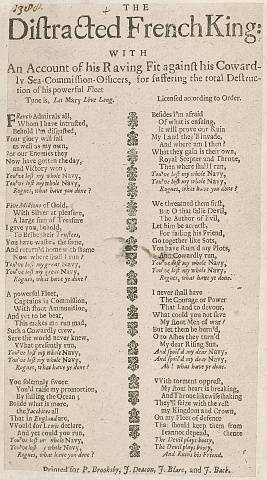 THE
Distracted French King:
WITH
An Account of his Raving Fit against his Coward-
ly Sea-Commission-Officers, for suffering the total Destruc-
tion of his powerful Fleet
Tune is, Let Mary Live Long.
Licensed according to Order.
French Admirals all,
Whom I have intrusted,
Behold I'm disgusted,
Your glory will fall
as well as my own,
For our Enemies they
Now have gotten the day,
and Victory won;
You've lost my whole Navy,
You've lost my whole Navy,
Rogues, what have you done?
Five Millions of Gold,
With Silver at pleasure,
A large sum of Treasure
I gave you, behold,
To Bribe their
You have the same,
And return'd home with shame
Now where shall I run?
You've lost my great Navy,
You've lost my great Navy,
Rogues, what have ye done?
A powerful Fleet,
Captains in Commission,
With stout Ammunition,
And yet to be beat,
This makes me run mad,
Such a Cowardly crew,
Sure the world never knew,
What presently run,
You've lost my whole Navy,
You've lost my whole Navy,
Rogues, what have you done?
You solemnly swore
You'd raise my promotion,
By sailing the Ocean;
Beside what is more,
the Jacobites all
That in England are,
Would for Lewis declare,
And yet could you run,
You've lost my whole Navy,
You've lost my whole Navy,
Rogues, what have you done?
Besides I'm afraid
Of what is ensuing,
It will prove our Ruin
My Land they'll invade,
And where am I then?
What they gain is their own,
Royal Scepter and Throne,
Then where shall I run,
You've lost my whole Navy,
You've lost my whole Navy,
Rogues, what have ye done?
We threatned them first,
But O that false Devil,
The Author of Evil,
Let him be accurst,
For failing his Friend,
Go together like Sots,
You have Ruin'd my Plots,
And Cowardly run,
You've lost my whole Navy,
You've lost my whole Navy,
Rogues, what have ye done?
I never shall have
The Courage or Power
That Land to devour,
What could you not save
My stout Men of war?
But let them be burn'd,
O to Ashes they turn'd
My dear Rising Sun.
And spoil'd my dear Navy,
And spoil'd my dear Navy,
Ah! what have ye done?
With torment opprest,
My stout heart is breaking,
And Throne likewise shaking
They'll seize with the rest
my Kingdom and Crown,
On my Fleet of defence
That should keep them from
I cannot depend, thence
The Devil plays booty,
The Devil plays booty,
And Ruins his Friend.
Printed for P. Brooksby, J. Deacon, J. Blare, and J. Back.